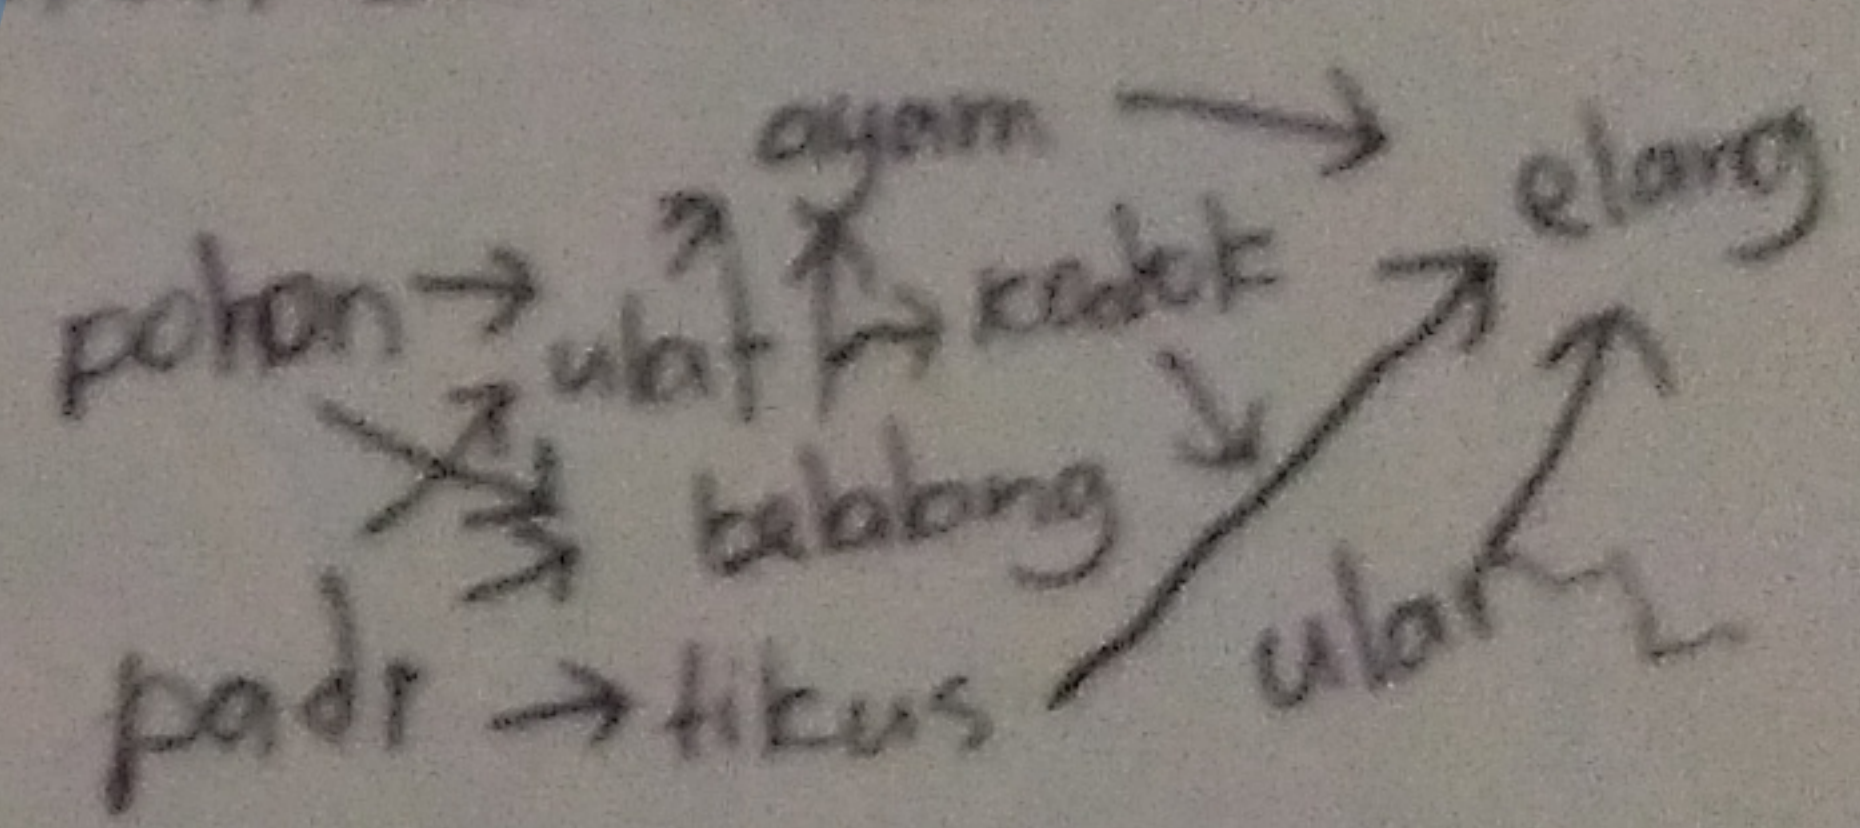 ayam → elang
pohon → ulat → katak
belalang
padi → tikus ular